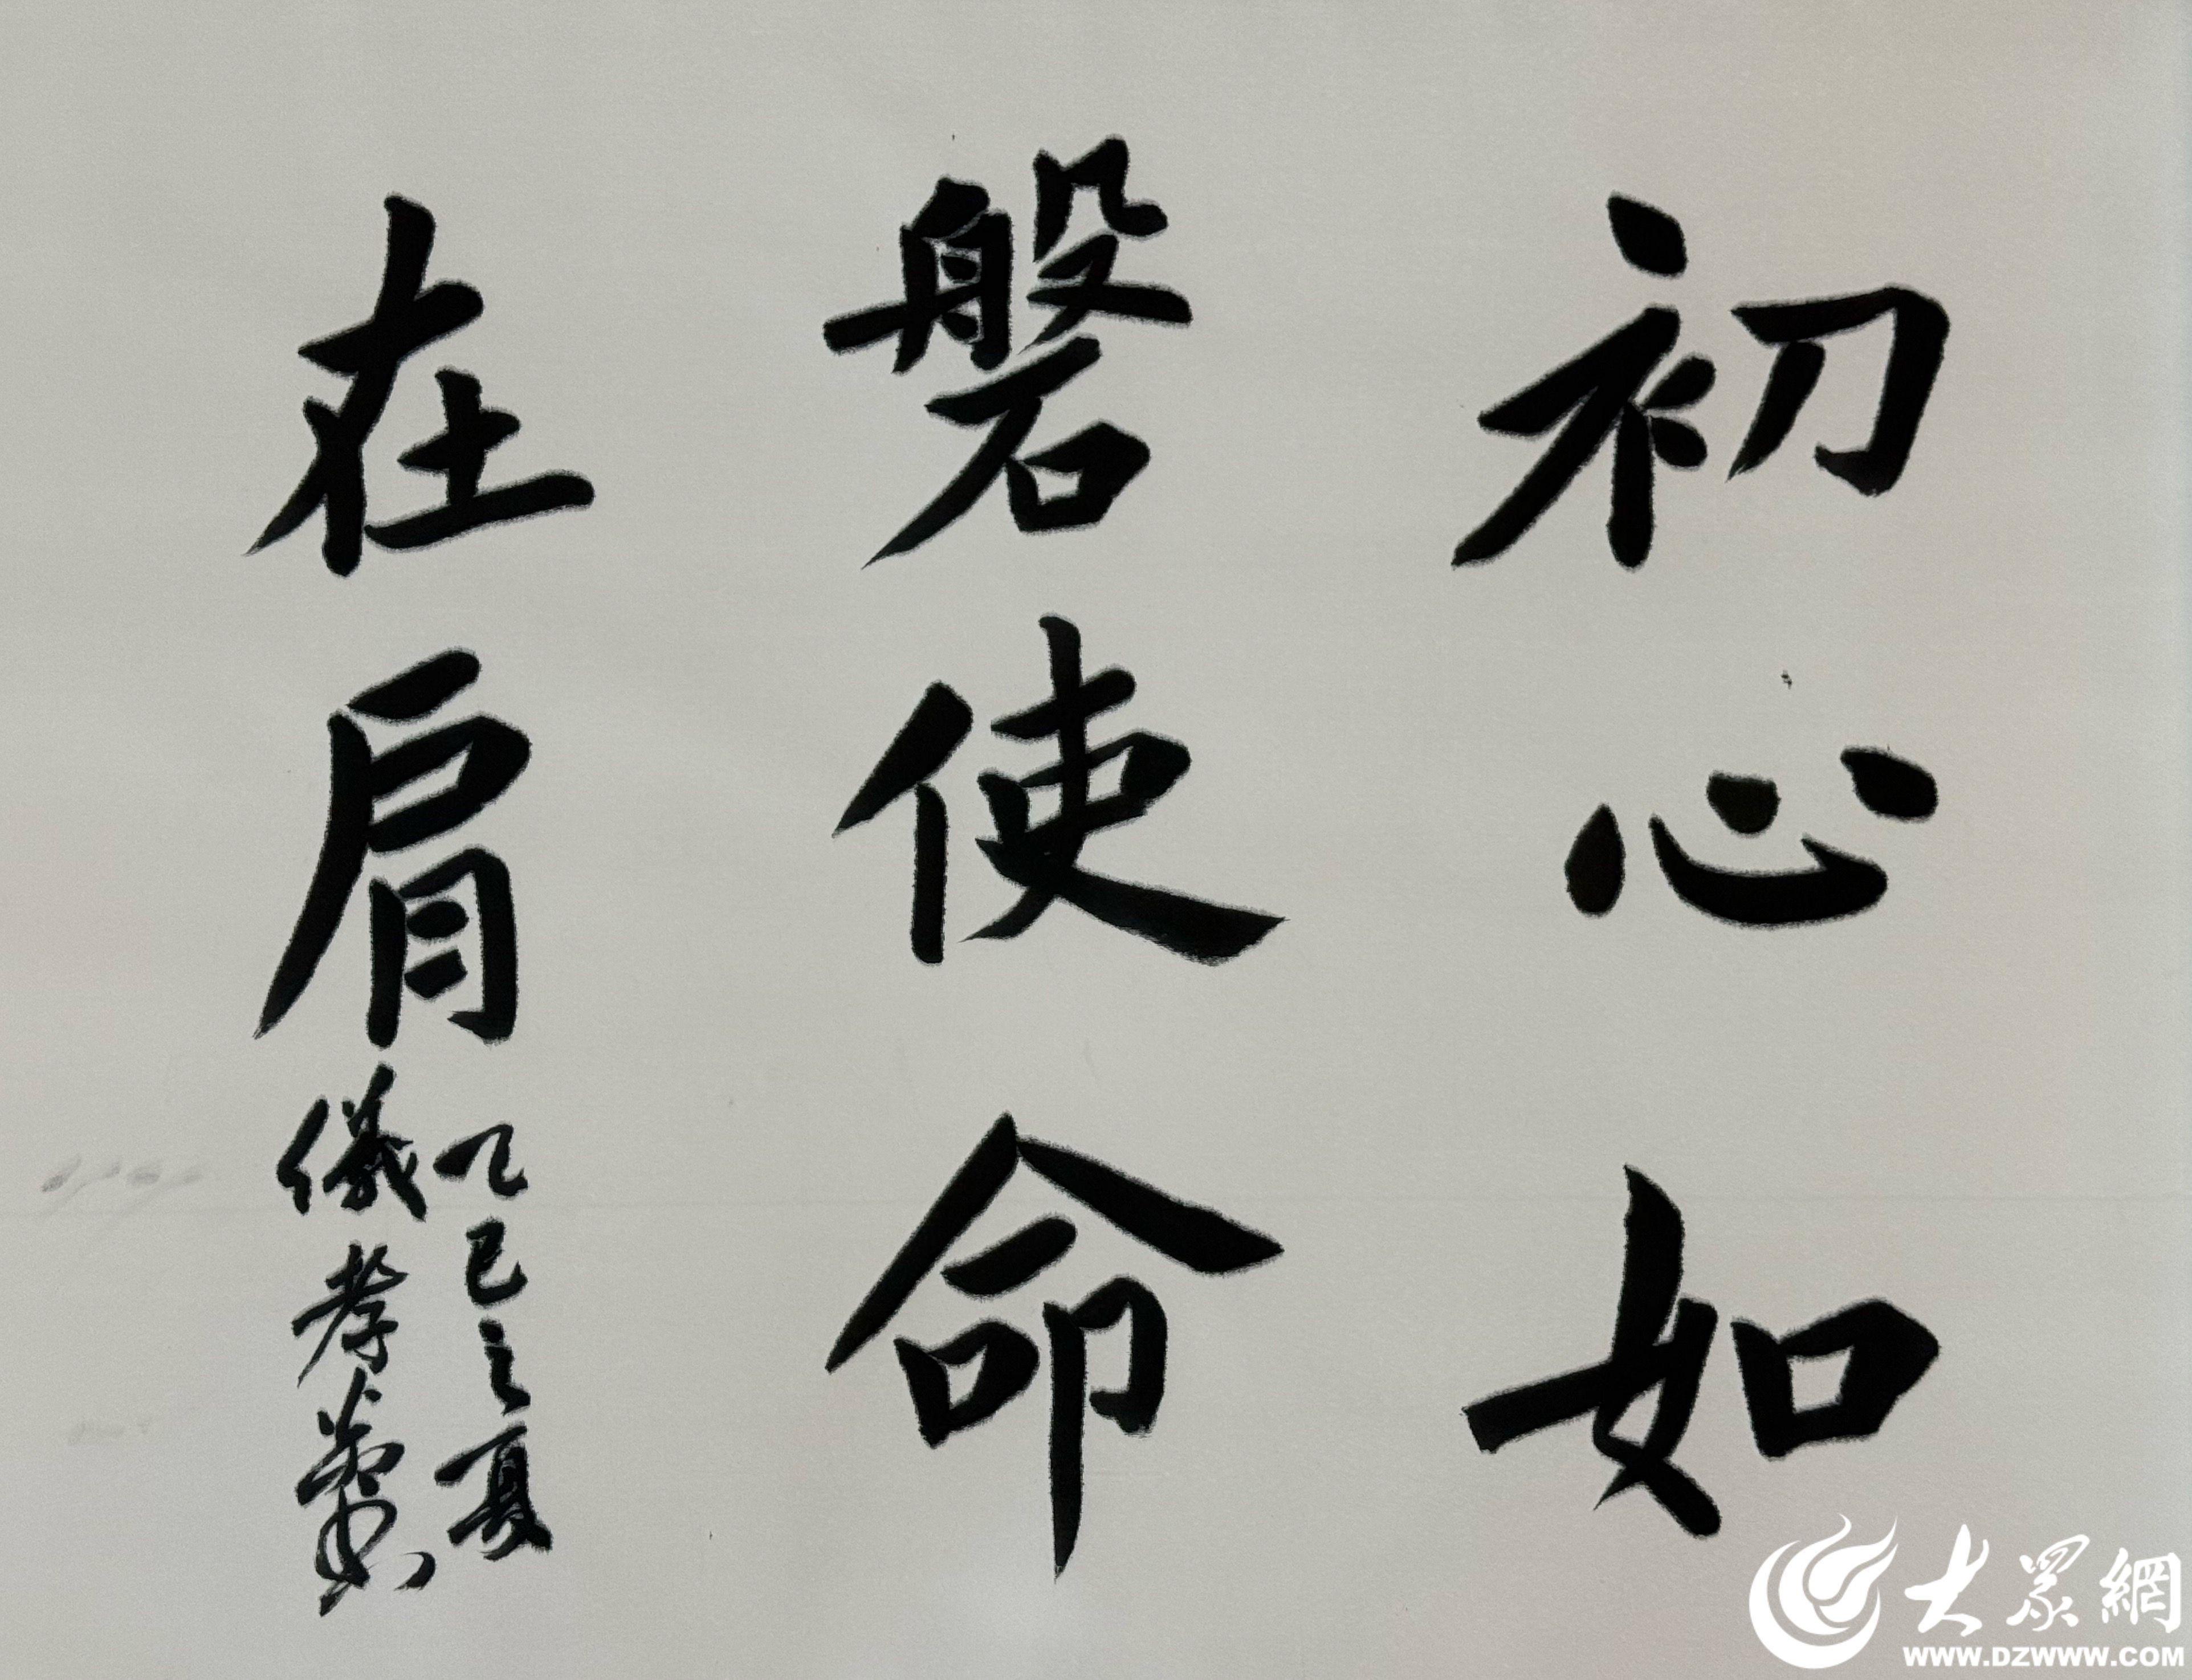 初心如
磐使命
在肩
乙巳之夏
儀孝
大眾網
WWW.DZWWW.COM